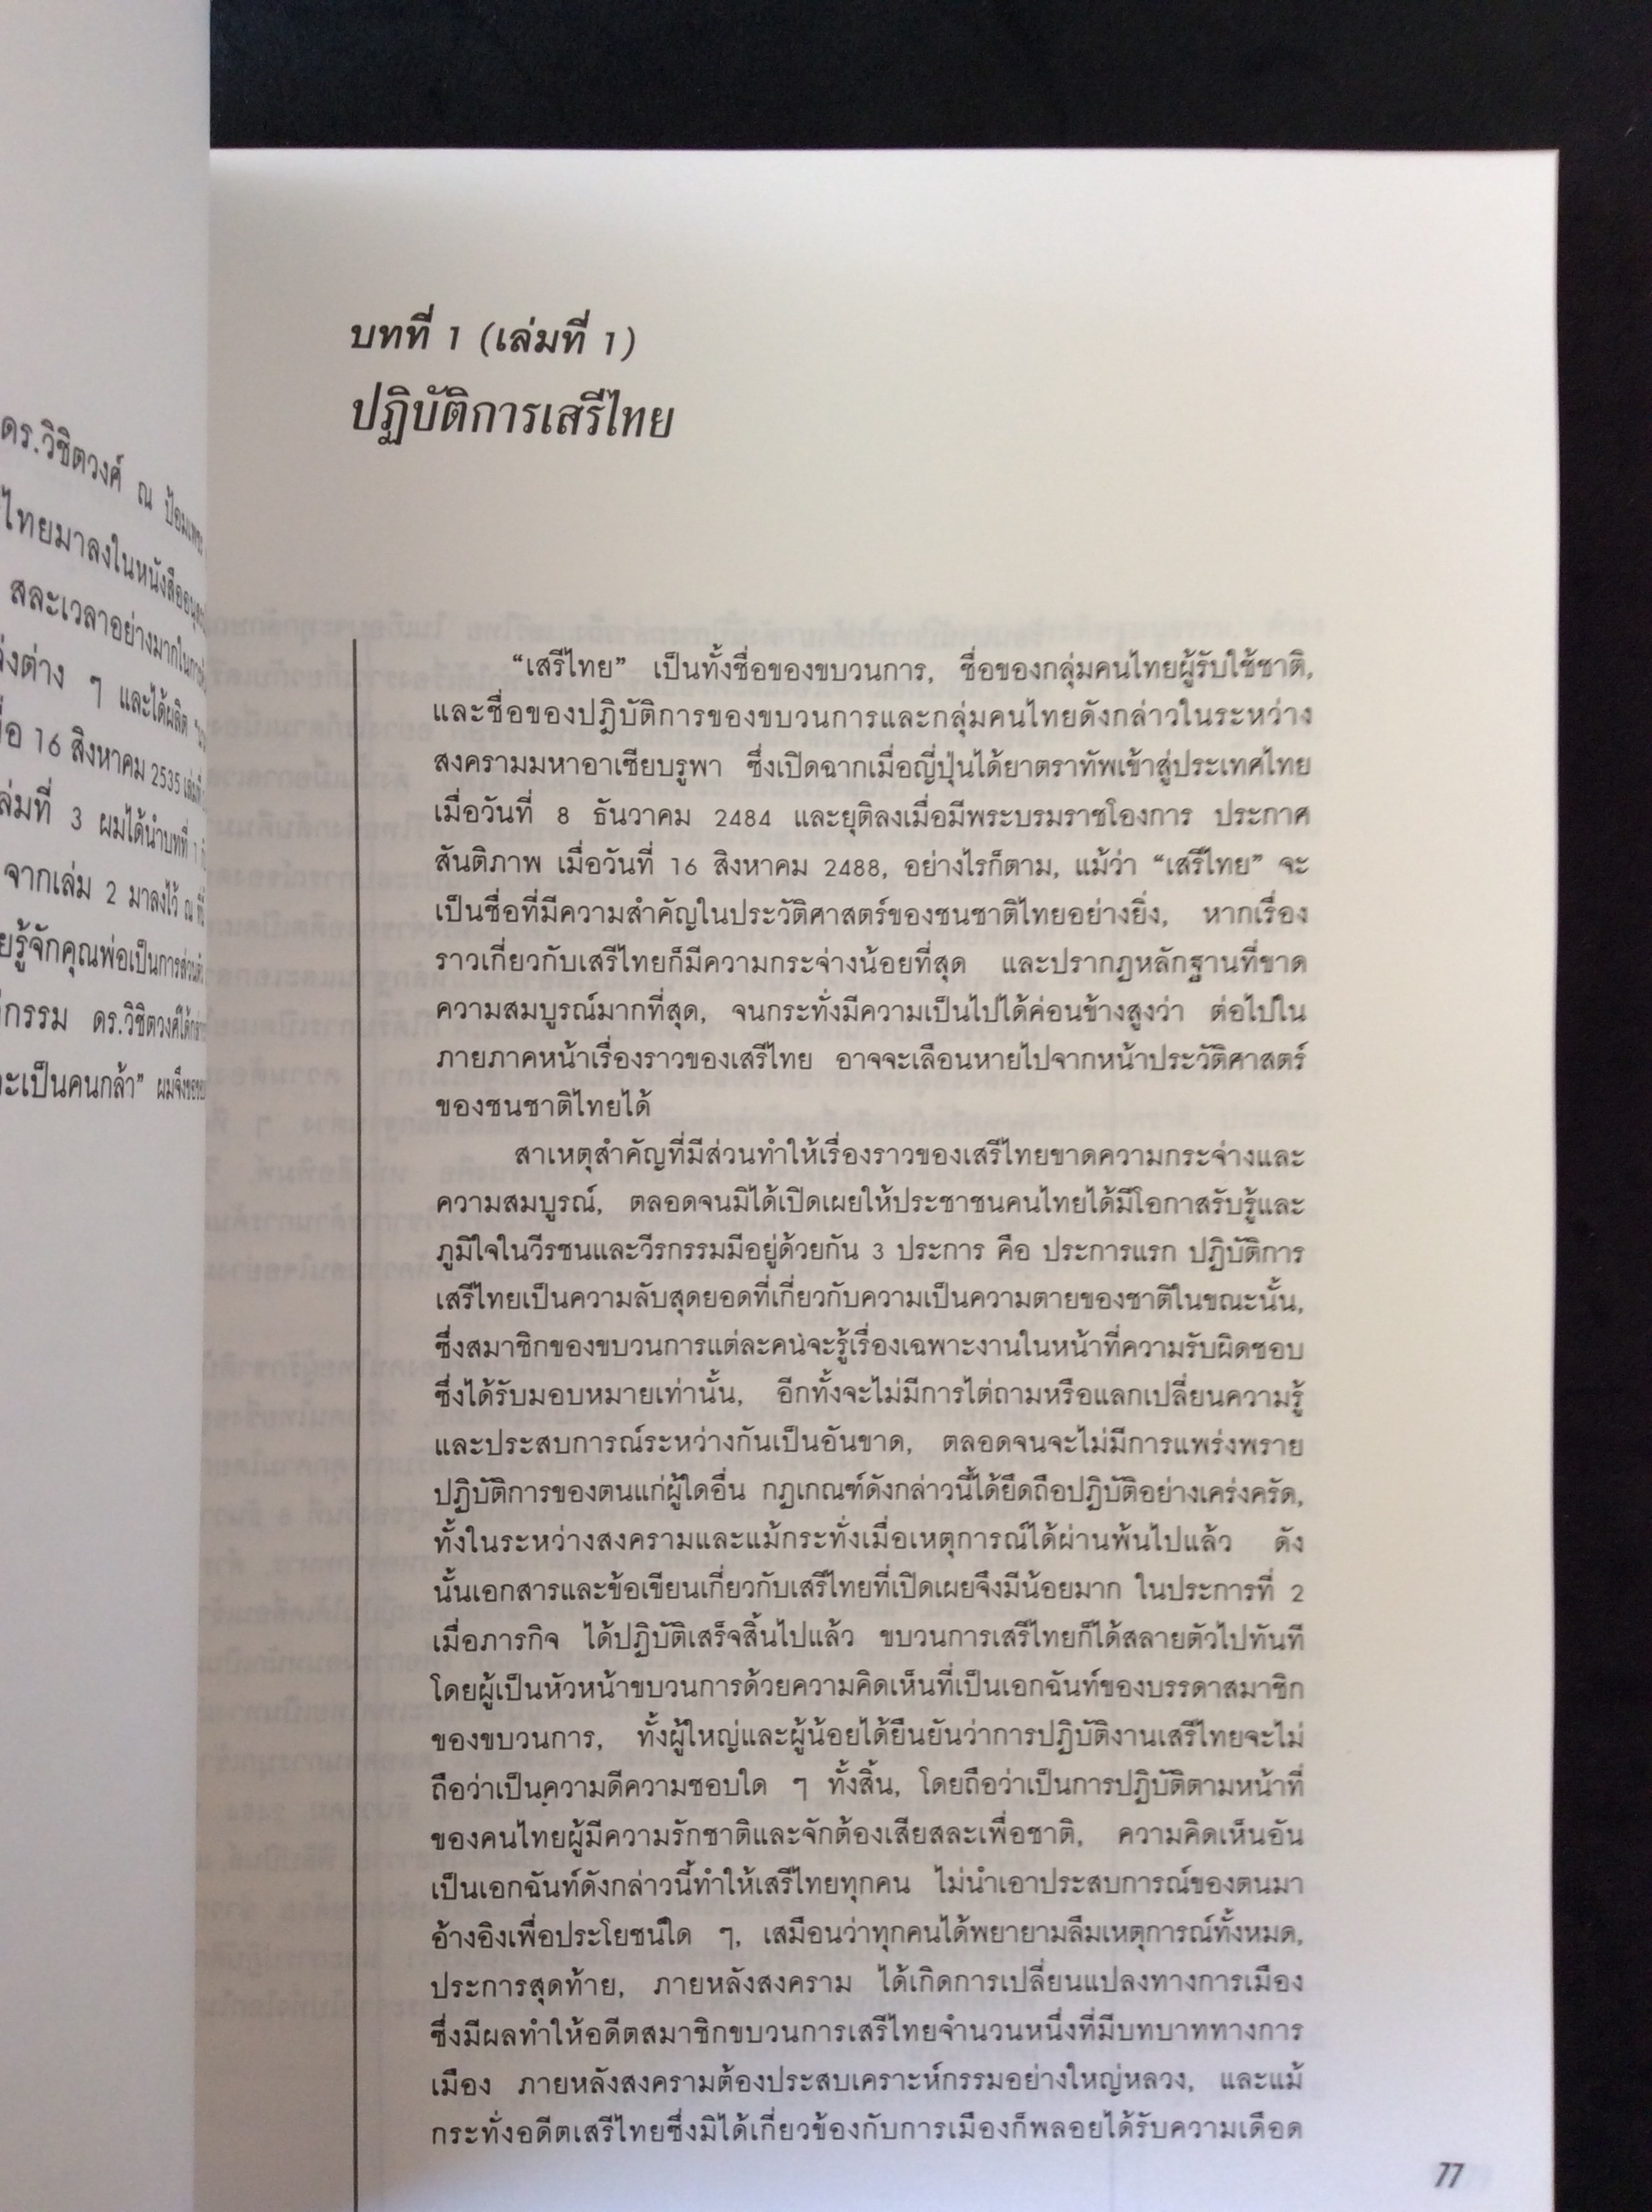 ดร.วิชิตวงศ์ ณ ป้อมเพชร
ไทยมาลงในหนังสืออนุสรณ์
สละเวลาอย่างมากในการ
ต่าง ๆ และได้ผลิต
16 สิงหาคม 2535 เล่มที่
ล่มที่ 3 ผมได้นำบทที่ 1
จากเล่ม 2 มาลงไว้ ณ ที่นี้
รู้จักคุณพ่อเป็นการส่วนตัว
กรรม ดร.วิชิตวงศ์ได้กล่าว
จะเป็นคนกล้า” ผมจึงขอขอบ
บทที่ 1 (เล่มที่ 1)
ปฏิบัติการเสรีไทย
“เสรีไทย” เป็นทั้งชื่อของขบวนการ, ชื่อของกลุ่มคนไทยผู้รับใช้ชาติ,
และชื่อของปฏิบัติการของขบวนการและกลุ่มคนไทยดังกล่าวในระหว่าง
สงครามมหาอาเซียบรูพา ซึ่งเปิดฉากเมื่อญี่ปุ่นได้ยาตราทัพเข้าสู่ประเทศไทย
เมื่อวันที่ 8 ธันวาคม 2484 และยุติลงเมื่อมีพระบรมราชโองการ ประกาศ
สันติภาพ เมื่อวันที่ 16 สิงหาคม 2488, อย่างไรก็ตาม, แม้ว่า “เสรีไทย” จะ
เป็นชื่อที่มีความสำคัญในประวัติศาสตร์ของชนชาติไทยอย่างยิ่ง, หากเรื่อง
ราวเกี่ยวกับเสรีไทยก็มีความกระจ่างน้อยที่สุด และปรากฏหลักฐานที่ขาด
ความสมบูรณ์มากที่สุด, จนกระทั่งมีความเป็นไปได้ค่อนข้างสูงว่า ต่อไปใน
ภายภาคหน้าเรื่องราวของเสรีไทย อาจจะเลือนหายไปจากหน้าประวัติศาสตร์
ของชนชาติไทยได้
สาเหตุสำคัญที่มีส่วนทำให้เรื่องราวของเสรีไทยขาดความกระจ่างและ
ความสมบูรณ์, ตลอดจนมิได้เปิดเผยให้ประชาชนคนไทยได้มีโอกาสรับรู้และ
ภูมิใจในวีรชนและวีรกรรมมีอยู่ด้วยกัน 3 ประการ คือ ประการแรก ปฏิบัติการ
เสรีไทยเป็นความลับสุดยอดที่เกี่ยวกับความเป็นความตายของชาติในขณะนั้น,
ซึ่งสมาชิกของขบวนการแต่ละคนจะรู้เรื่องเฉพาะงานในหน้าที่ความรับผิดชอบ
ซึ่งได้รับมอบหมายเท่านั้น, อีกทั้งจะไม่มีการไต่ถามหรือแลกเปลี่ยนความรู้
และประสบการณ์ระหว่างกันเป็นอันขาด, ตลอดจนจะไม่มีการแพร่งพราย
ปฏิบัติการของตนแก่ผู้ใดอื่น กฎเกณฑ์ดังกล่าวนี้ได้ยึดถือปฏิบัติอย่างเคร่งครัด,
ทั้งในระหว่างสงครามและแม้กระทั่งเมื่อเหตุการณ์ได้ผ่านพ้นไปแล้ว ดัง
นั้นเอกสารและข้อเขียนเกี่ยวกับเสรีไทยที่เปิดเผยจึงมีน้อยมาก ในประการที่ 2
เมื่อภารกิจ ได้ปฏิบัติเสร็จสิ้นไปแล้ว ขบวนการเสรีไทยก็ได้สลายตัวไปทันที
โดยผู้เป็นหัวหน้าขบวนการด้วยความคิดเห็นที่เป็นเอกฉันท์ของบรรดาสมาชิก
ของขบวนการ, ทั้งผู้ใหญ่และผู้น้อยได้ยืนยันว่าการปฏิบัติงานเสรีไทยจะไม่
ถือว่าเป็นความดีความชอบใด ๆ ทั้งสิ้น, โดยถือว่าเป็นการปฏิบัติตามหน้าที่
ของคนไทยผู้มีความรักชาติและจักต้องเสียสละเพื่อชาติ, ความคิดเห็นอัน
เป็นเอกฉันท์ดังกล่าวนี้ทำให้เสรีไทยทุกคน ไม่นำเอาประสบการณ์ของตนมา
อ้างอิงเพื่อประโยชน์ใด ๆ, เสมือนว่าทุกคนได้พยายามลืมเหตุการณ์ทั้งหมด,
ประการสุดท้าย, ภายหลังสงคราม ได้เกิดการเปลี่ยนแปลงทางการเมือง
ซึ่งมีผลทำให้อดีตสมาชิกขบวนการเสรีไทยจำนวนหนึ่งที่มีบทบาททางการ
เมือง ภายหลังสงครามต้องประสบเคราะห์กรรมอย่างใหญ่หลวง, และแม้
กระทั่งอดีตเสรีไทยซึ่งมิได้เกี่ยวข้องกับการเมืองก็พลอยได้รับความเดือด
77